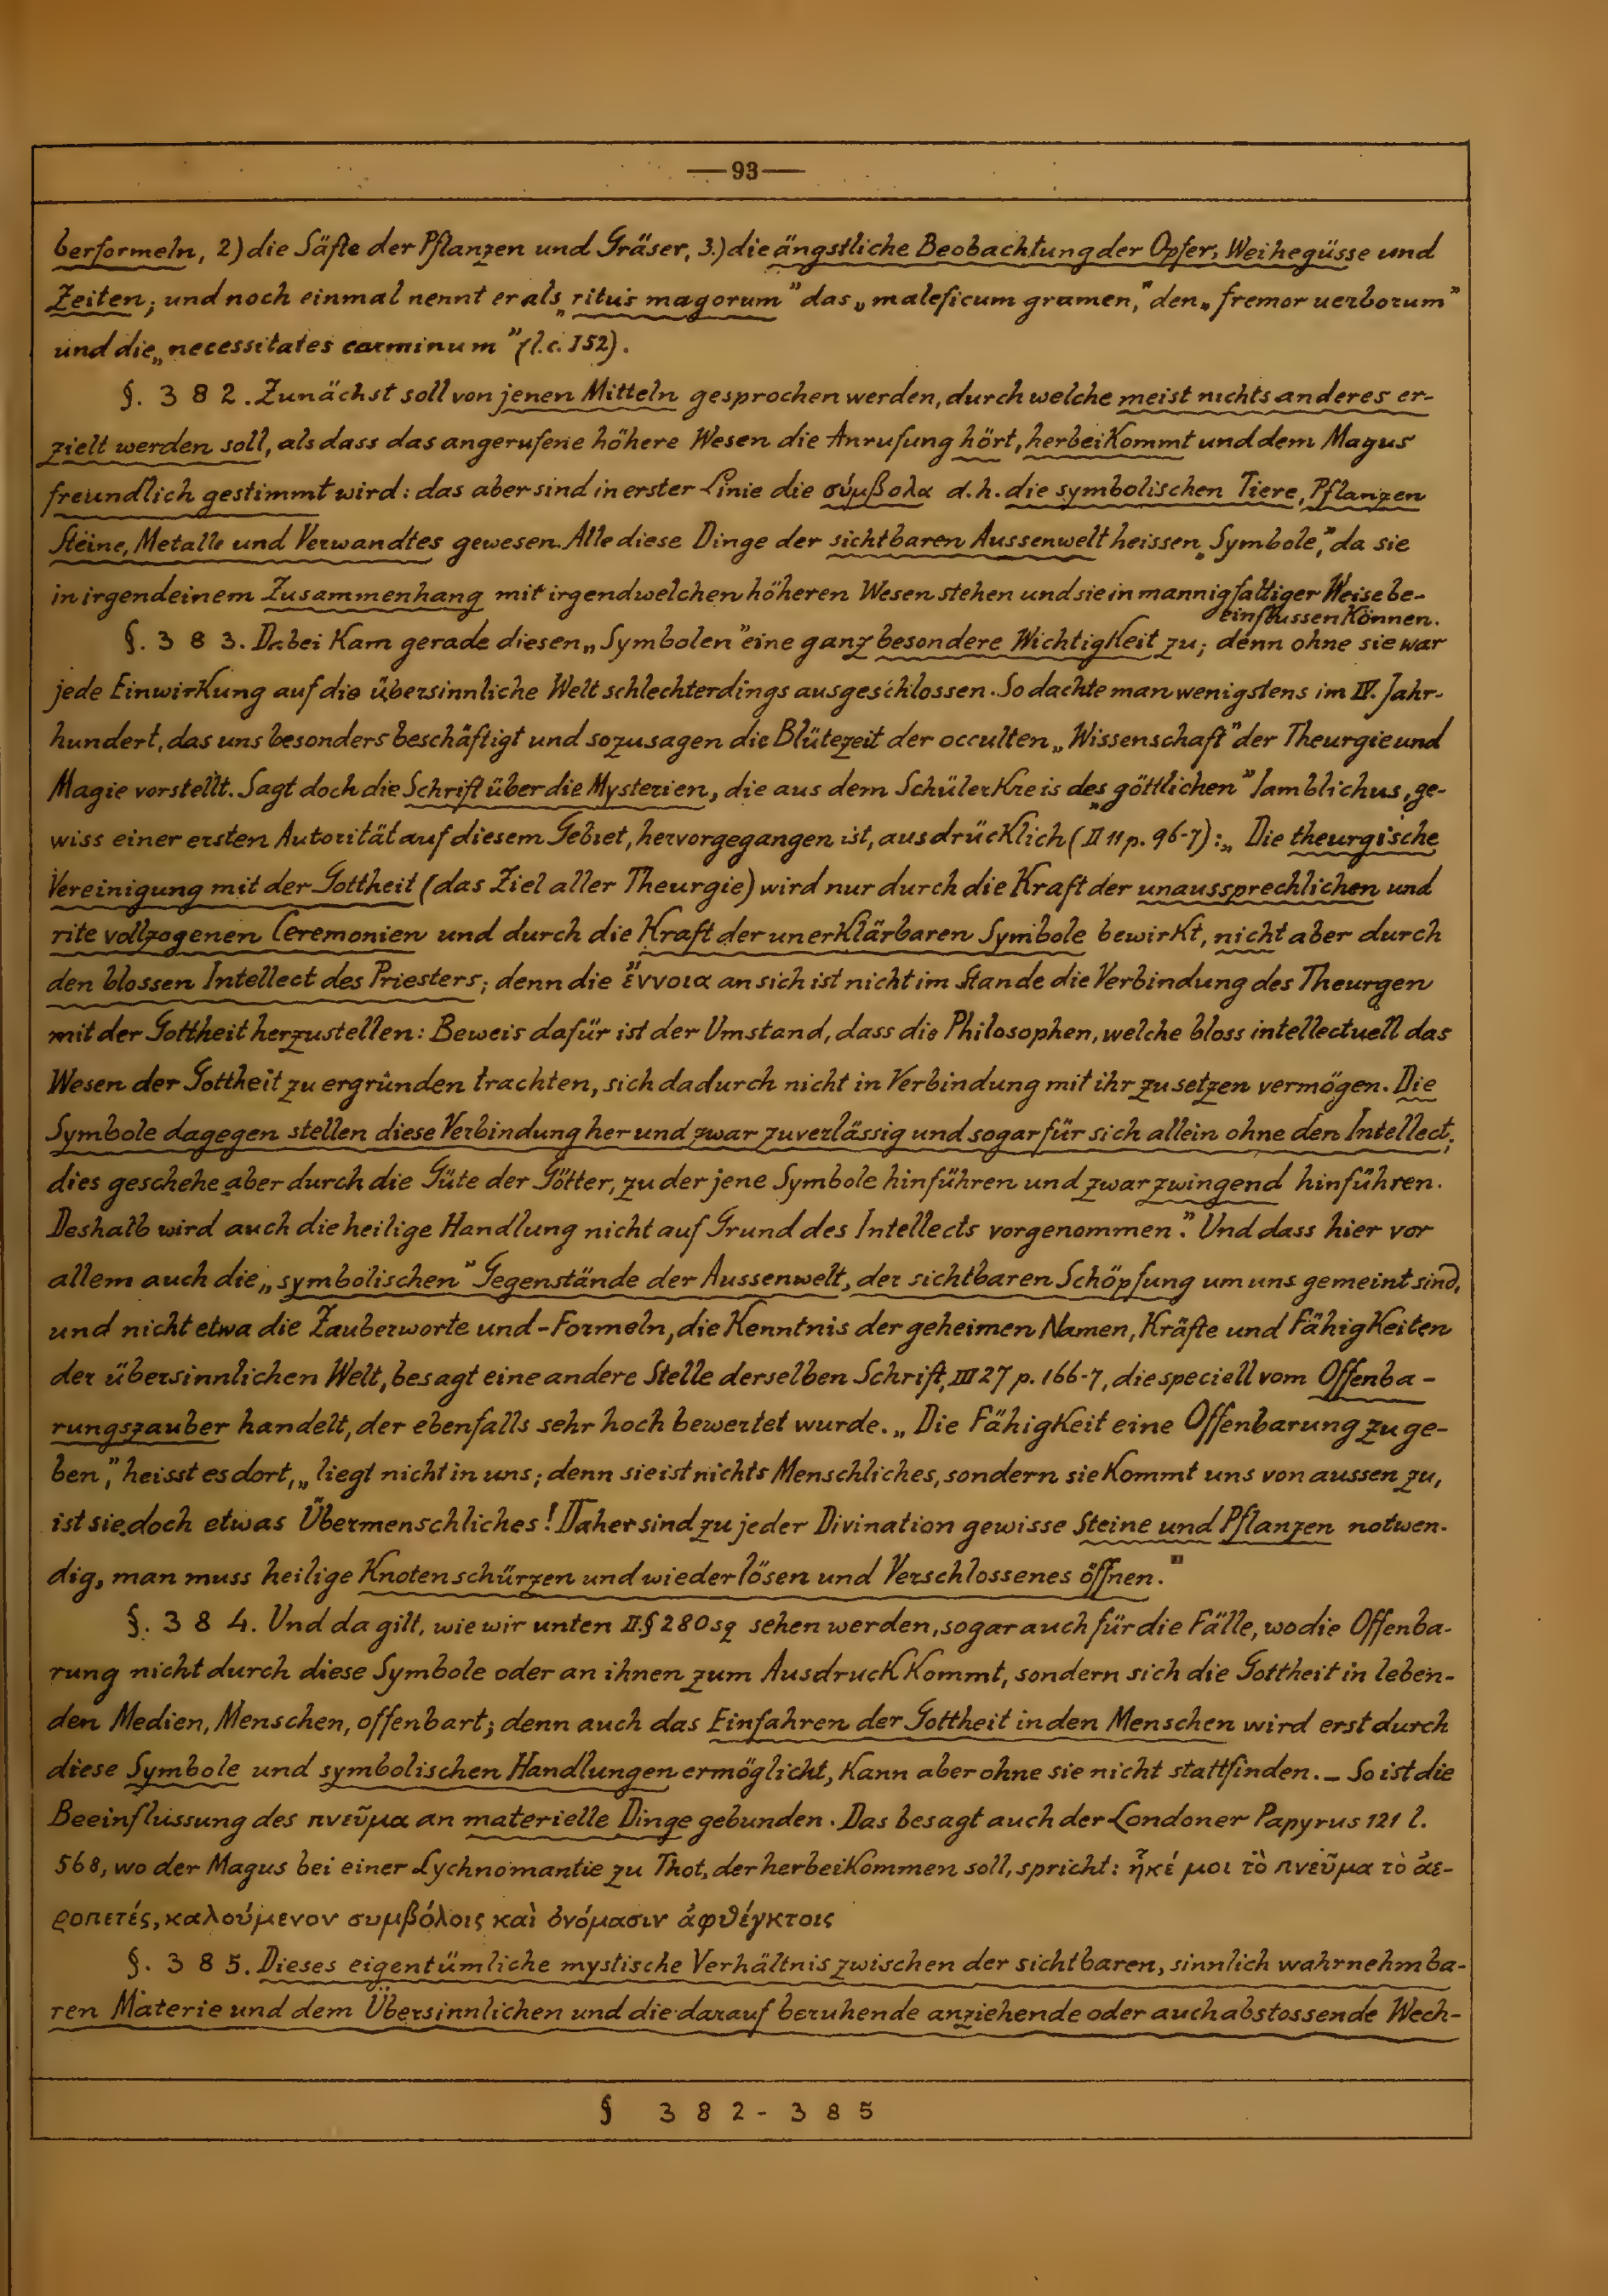 —93—
berformeln, 2) die Säfte der Pflanzen und Gräser, 3.) die ängstliche Beobachtung der Opfer, Weihegüsse und
Zeiten; und noch einmal nennt er als „ritus magorum” das „maleficum gramen,” den „fremor uerborum”
und die „necessitates carminum” (l.c. 152).
§. 3 8 2. Zunächst soll von jenen Mitteln gesprochen werden, durch welche meist nichts anderes er-
zielt werden soll, als dass das angerufene höhere Wesen die Anrufung hört, herbeikommt und dem Magus
freundlich gestimmt wird: das aber sind in erster Linie die σύμβολα d.h. die symbolischen Tiere, Pflanzen
Steine, Metalle und Verwandtes gewesen. Alle diese Dinge der sichtbaren Aussenwelt heissen „Symbole,” da sie
in irgendeinem Zusammenhang mit irgendwelchen höheren Wesen stehen und sie in mannigfaltiger Weise be-
einflussen können.
§. 3 8 3. Dabei kam gerade diesen „Symbolen” eine ganz besondere Wichtigkeit zu; denn ohne sie war
jede Einwirkung auf die übersinnliche Welt schlechterdings ausgeschlossen. So dachte man wenigstens im IV. Jahr-
hundert, das uns besonders beschäftigt und sozusagen die Blütezeit der occulten „Wissenschaft” der Theurgie und
Magie vorstellt. Sagt doch die Schrift über die Mysterien, die aus dem Schülerkreis des „göttlichen” Iamblichus, ge-
wiss einer ersten Autorität auf diesem Gebiet, hervorgegangen ist, ausdrücklich (II 11 p. 96-7): „Die theurgische
Vereinigung mit der Gottheit (das Ziel aller Theurgie) wird nur durch die Kraft der unaussprechlichen und
rite vollzogenen Ceremonien und durch die Kraft der unerklärbaren Symbole bewirkt, nicht aber durch
den blossen Intellect des Priesters; denn die ἔννοια an sich ist nicht im Stande die Verbindung des Theurgen
mit der Gottheit herzustellen: Beweis dafür ist der Umstand, dass die Philosophen, welche bloss intellectuell das
Wesen der Gottheit zu ergründen trachten, sich dadurch nicht in Verbindung mit ihr zu setzen vermögen. Die
Symbole dagegen stellen diese Verbindung her und zwar zuverlässig und sogar für sich allein ohne den Intellect;
dies geschehe aber durch die Güte der Götter, zu der jene Symbole hinführen und zwar zwingend hinführen.
Deshalb wird auch die heilige Handlung nicht auf Grund des Intellects vorgenommen.” Und dass hier vor
allem auch die „symbolischen” Gegenstände der Aussenwelt, der sichtbaren Schöpfung um uns gemeint sind,
und nicht etwa die Zauberworte und -Formeln, die Kenntnis der geheimen Namen, Kräfte und Fähigkeiten
der übersinnlichen Welt, besagt eine andere Stelle derselben Schrift, III 27 p. 166-7, die speciell vom Offenba-
rungszauber handelt, der ebenfalls sehr hoch bewertet wurde. „Die Fähigkeit eine Offenbarung zu ge-
ben,” heisst es dort, „liegt nicht in uns; denn sie ist nichts Menschliches, sondern sie kommt uns von aussen zu,
ist sie doch etwas Übermenschliches! Daher sind zu jeder Divination gewisse Steine und Pflanzen notwen-
dig, man muss heilige Knoten schürzen und wieder lösen und Verschlossenes öffnen.”
§. 3 8 4. Und da gilt, wie wir unten II.§ 280 sq sehen werden, sogar auch für die Fälle, wo die Offenba-
rung nicht durch diese Symbole oder an ihnen zum Ausdruck kommt, sondern sich die Gottheit in leben-
den Medien, Menschen, offenbart; denn auch das Einfahren der Gottheit in den Menschen wird erst durch
diese Symbole und symbolischen Handlungen ermöglicht, kann aber ohne sie nicht stattfinden. – So ist die
Beeinflussung des πνεῦμα an materielle Dinge gebunden. Das besagt auch der Londoner Papyrus 121 l.
568, wo der Magus bei einer Lychnomantie zu Thot, der herbeikommen soll, spricht: ἧκέ μοι τὸ πνεῦμα τὸ ἀε-
ροπετές, καλούμενον συμβόλοις καὶ ὀνόμασιν ἀφθέγκτοις
§. 3 8 5. Dieses eigentümliche mystische Verhältnis zwischen der sichtbaren, sinnlich wahrnehmba-
ren Materie und dem Übersinnlichen und die darauf beruhende anziehende oder auch abstossende Wech-
§ 3 8 2 - 3 8 5